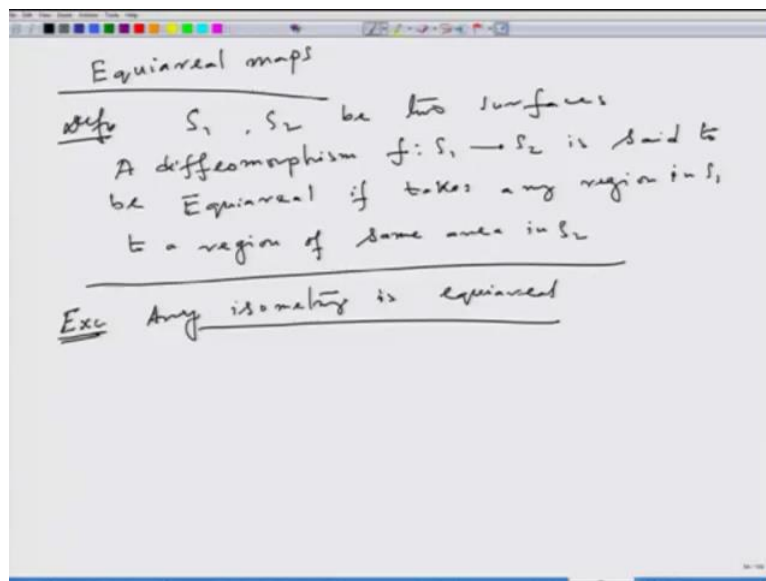 Equiareal maps
Defn S₁, S₂ be two surfaces
A diffeomorphism f: S₁ → S₂ is said to
be Equiareal if takes any region in S₁
to a region of same area in S₂
Exc Any isometry is equiareal